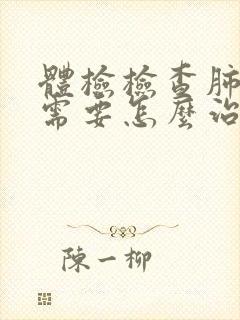 體檢檢查肺
需要怎麼治
陳一柳